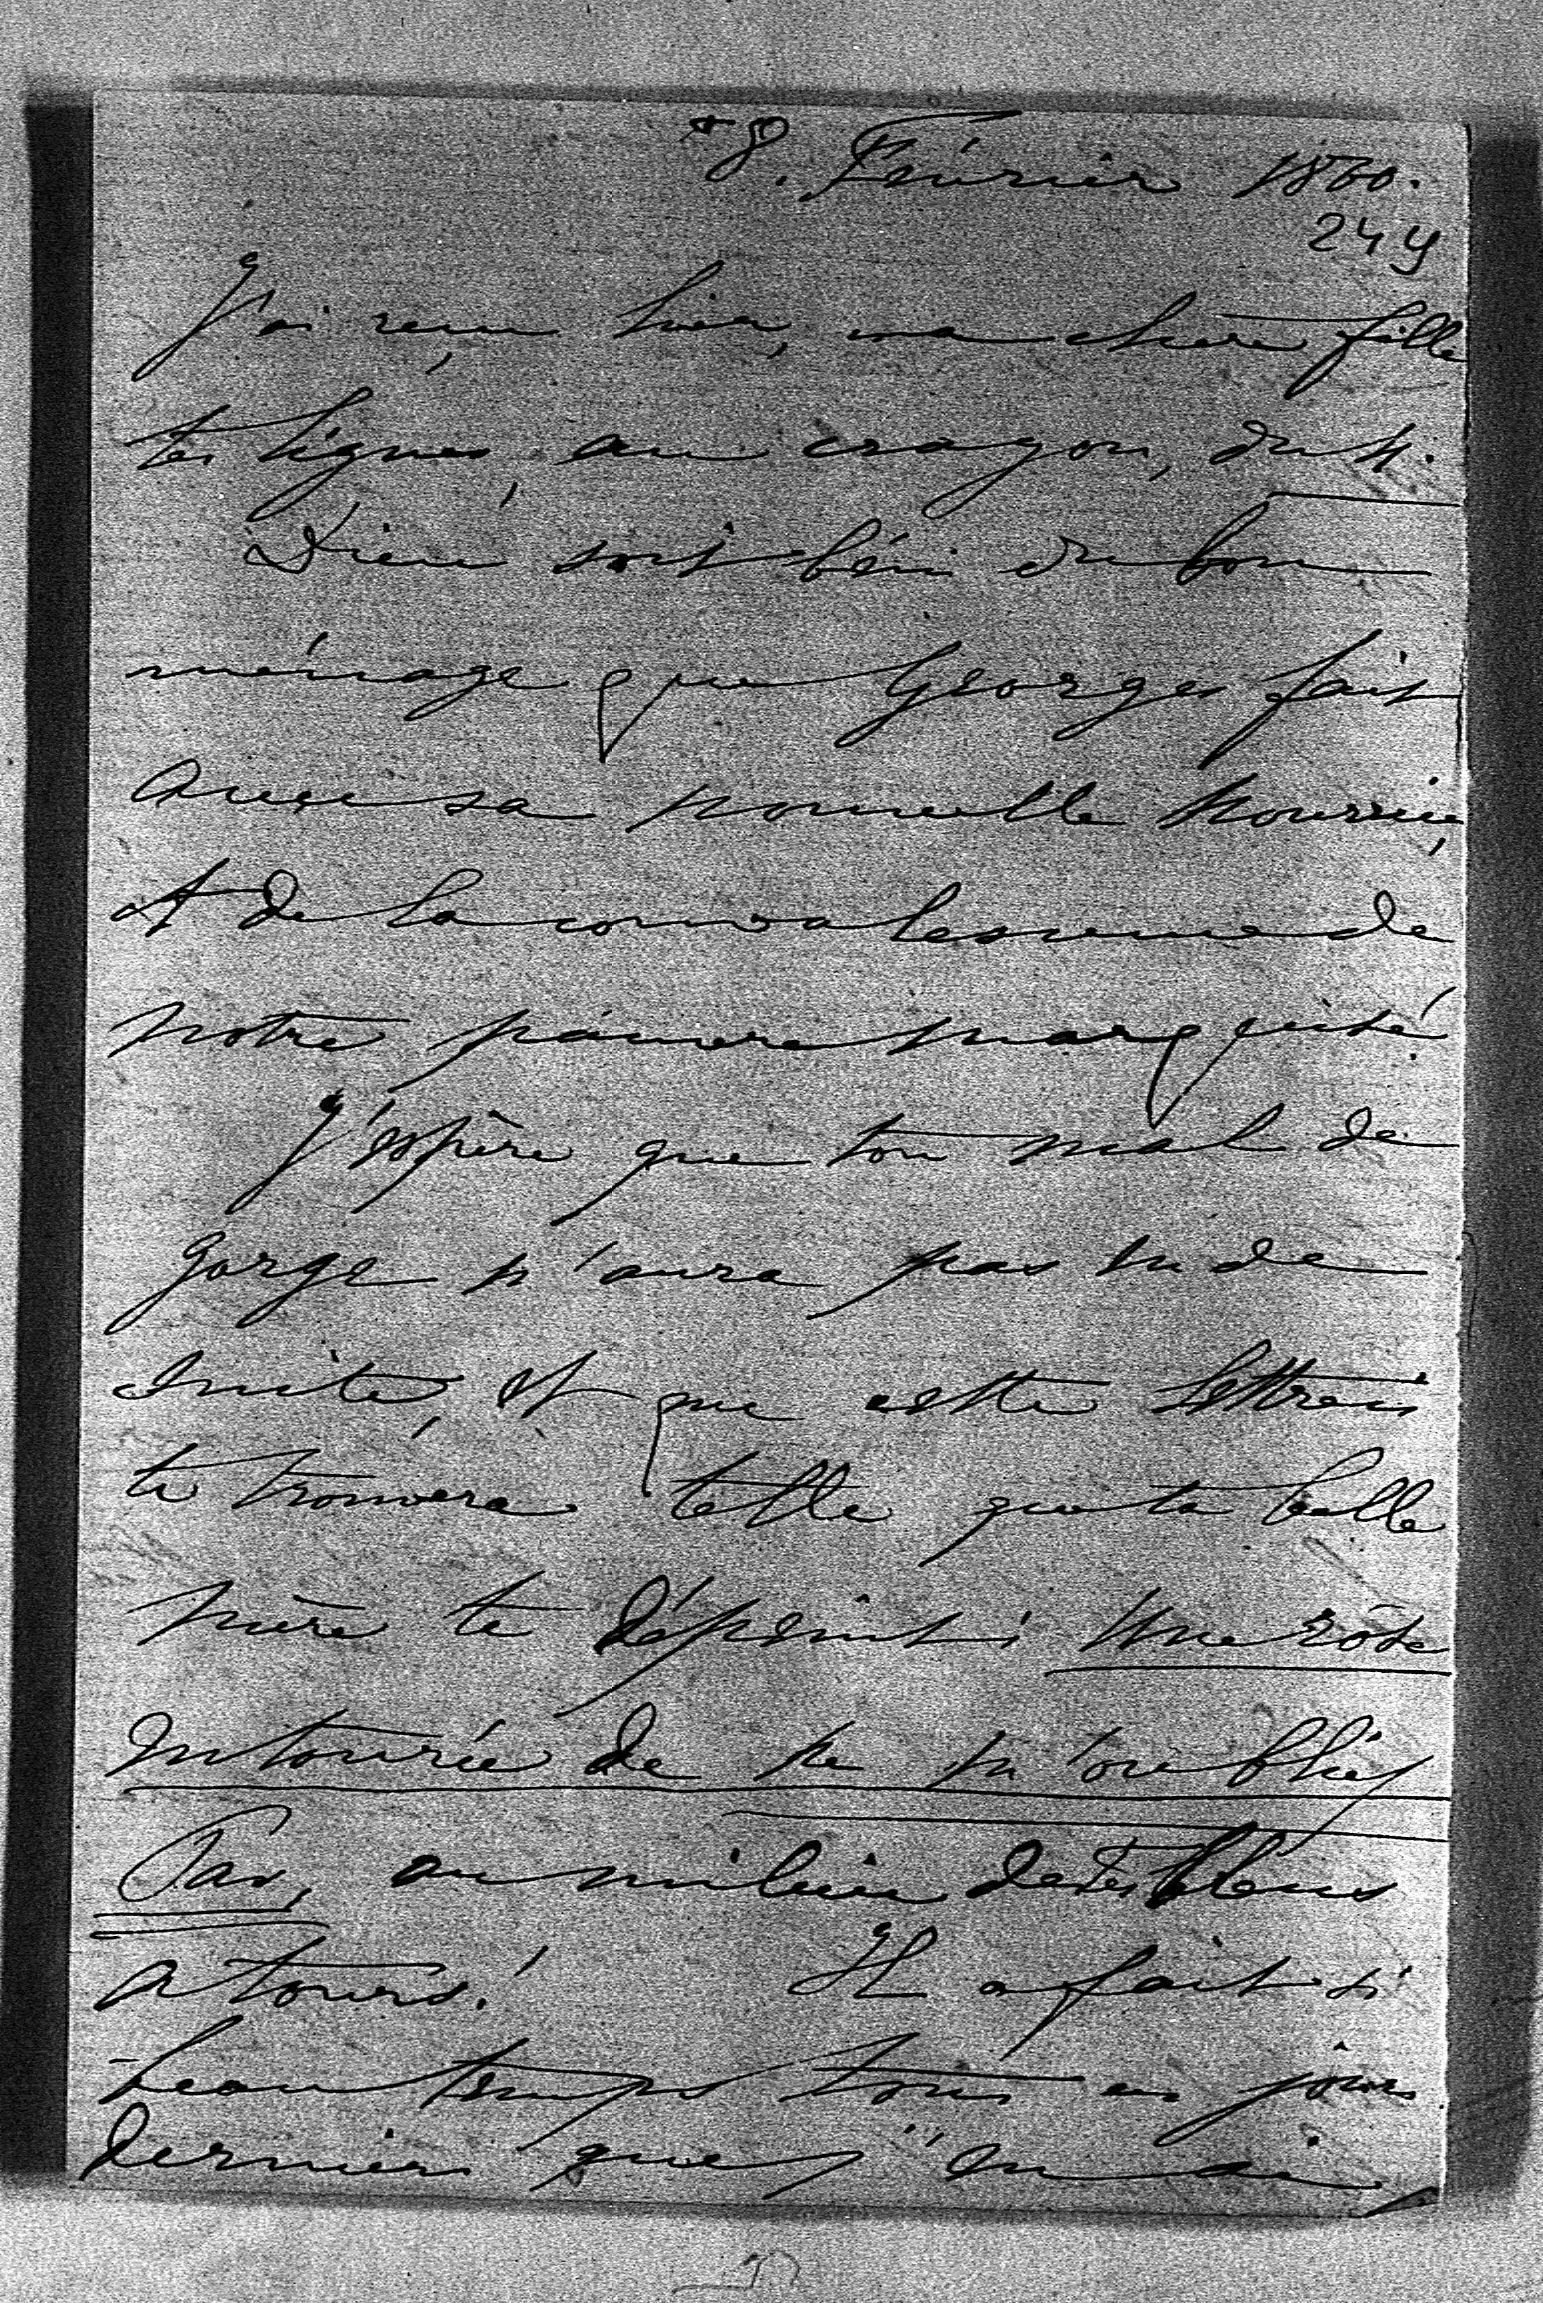 8. Février 1860.
249
J'ai reçu hier, ma chère fille
tes lignes, au crayon, du 4.
Dieu soit béni du bon
ménage que Georges fait
avec sa nouvelle nourrice,
et de la convalescence de
notre pauvre marquise!
J'espère que ton mal de
gorge n'aura pas eu de
suite, et que cette lettre
te trouvera telle que ta belle
mère te dépeint: Une rose
entourée de ne m'oubliez
Pas, au milieu de tes bleus
atours! Il a fait si
beau temps tous ces jours
derniers que j'en ai